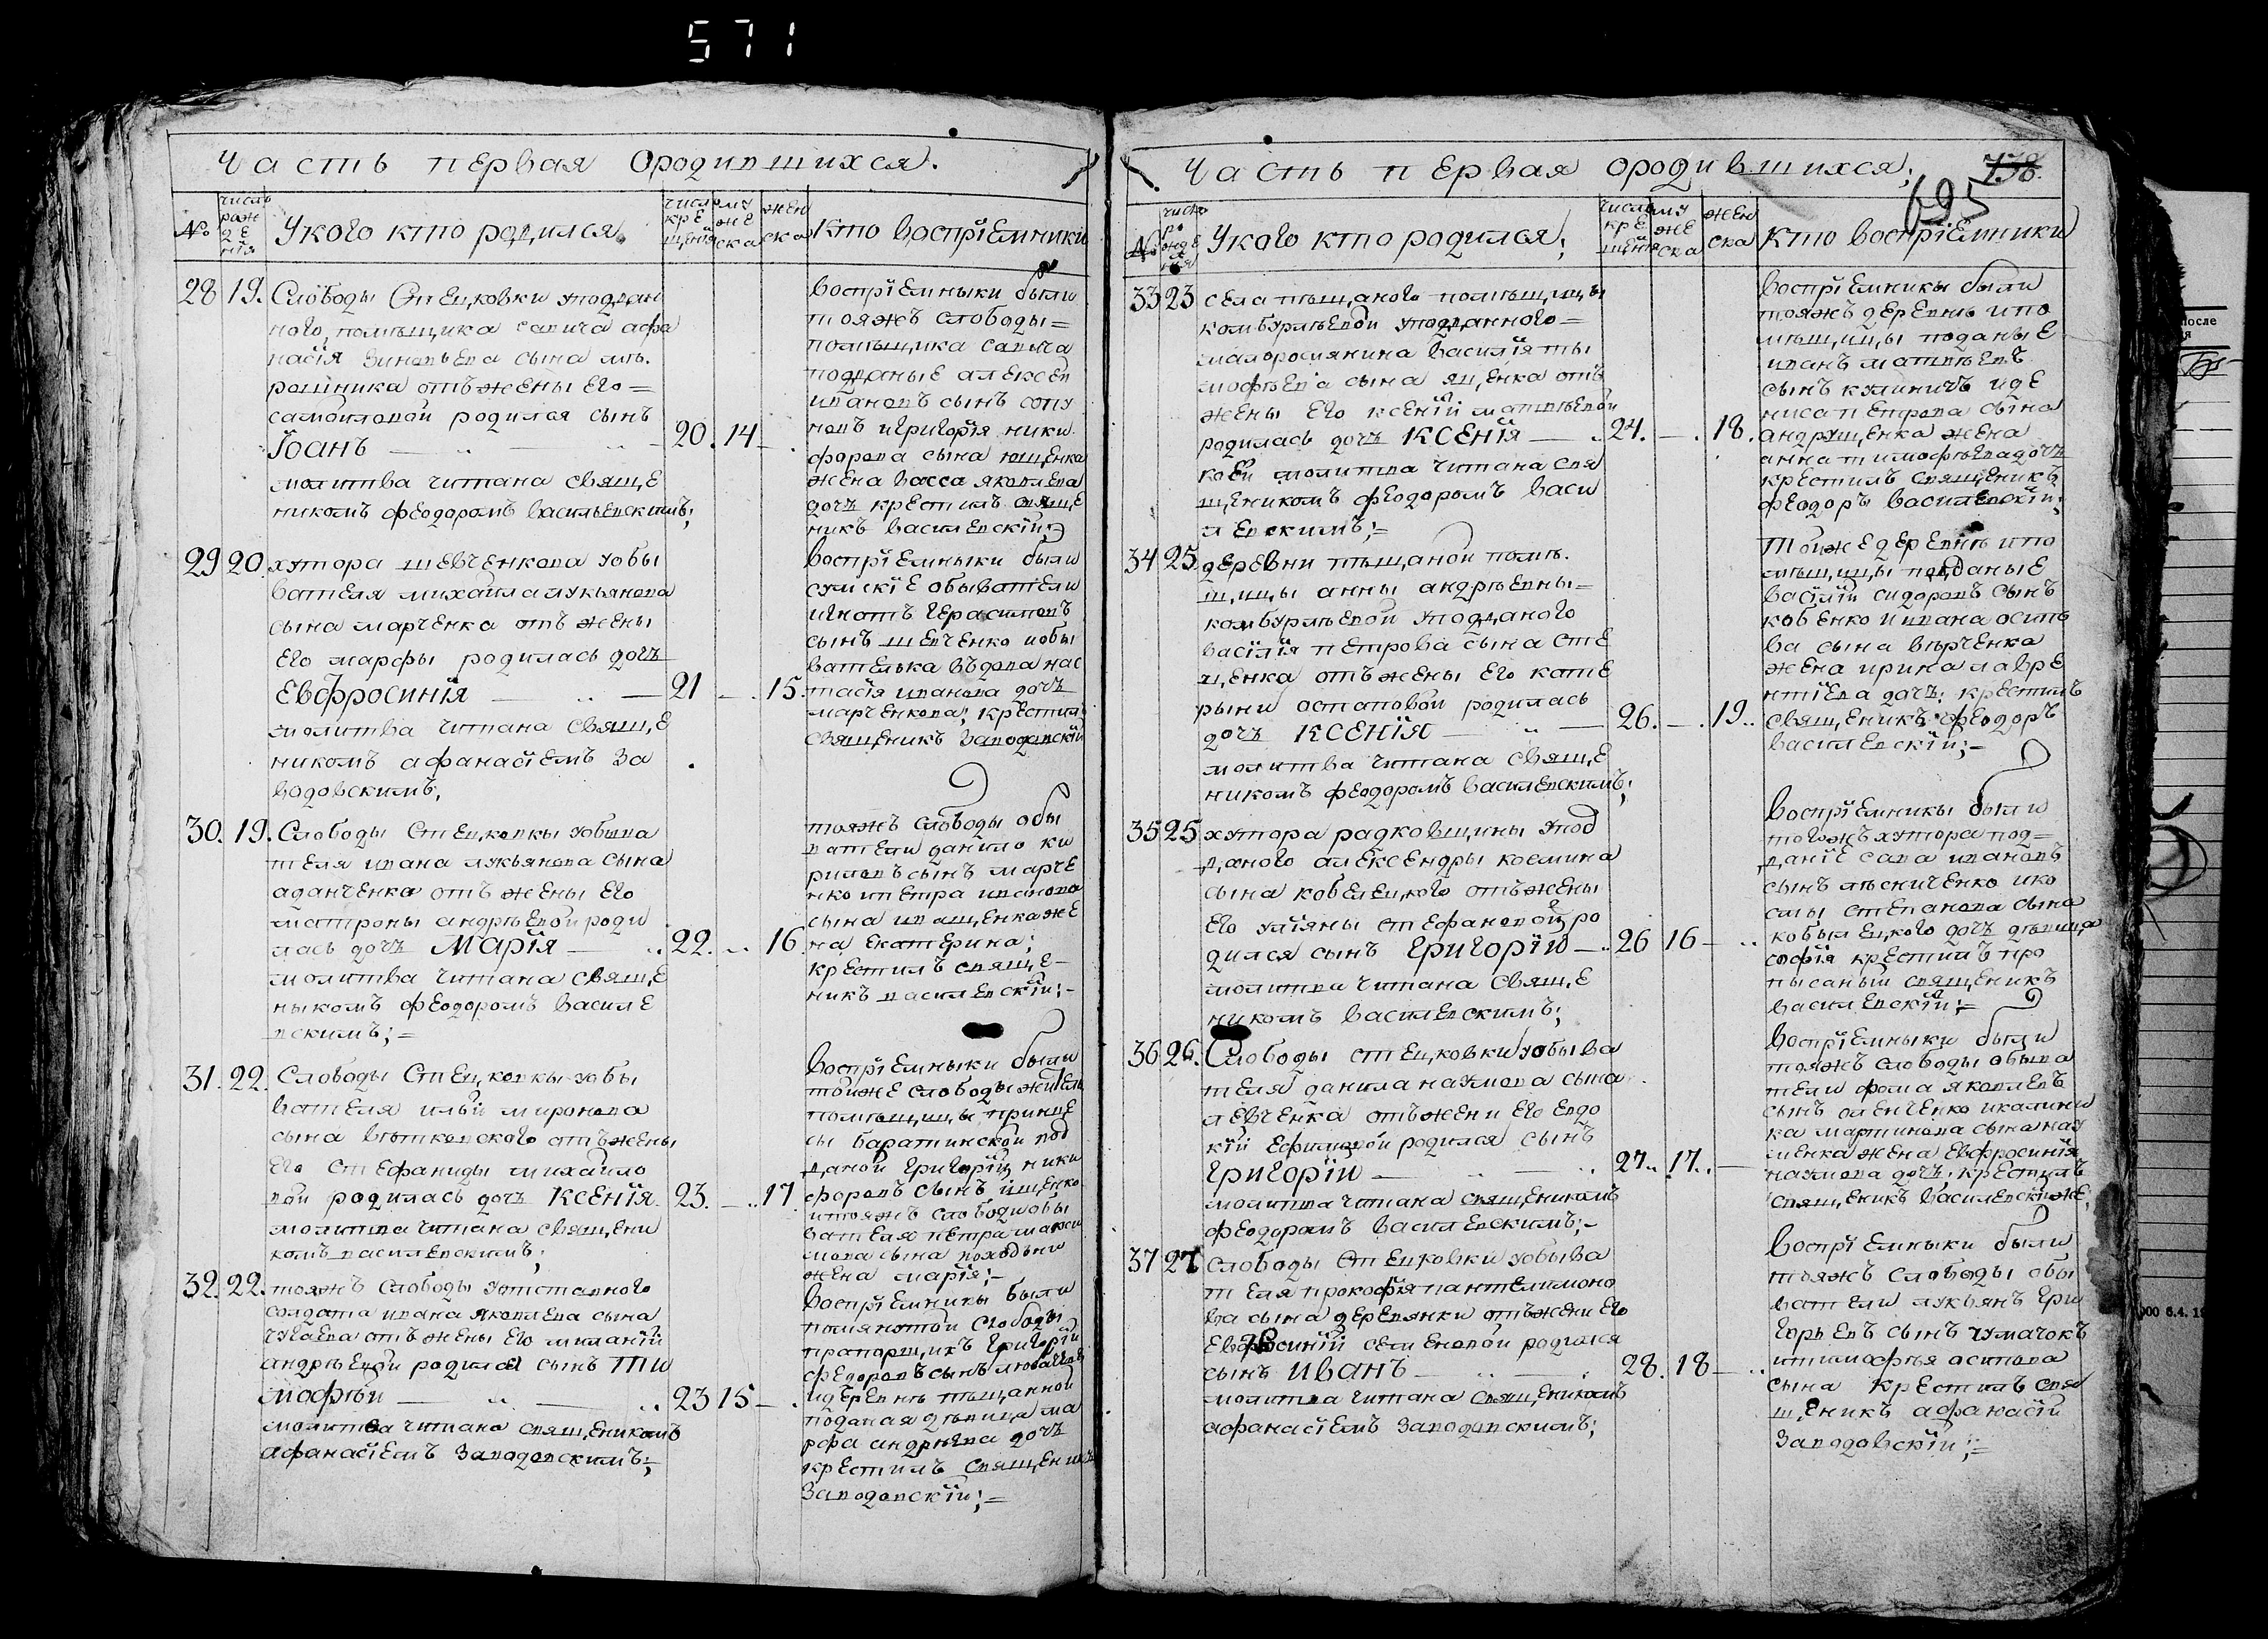 571
Часть первая ородившихся.
№
число
рож
де
нія
Укого кто родился
число
кре
щенія
му
же
ска
жен
ска
Кто воспріемники
28 19. Слободы Стецковки уподдан
ного, помѣщика савича афа
насія Зиновьева сына мѣ.
рошника отъ жены его =
самойловой родился сынъ
Їоанъ 20. 14
молитва читана свяще
никомъ феодоромъ Васильевскимъ;
воспріемныки были
тояжъ слободы =
помѣщика савича
подданые алексей
ивановъ сынъ
новъ игригорія ники
форова сына ющенка
жена васса яковлева
дочъ крестилъ свяще
никъ василевскій;
29 20. хутора шевченкова уобы
вателя михаила лукьянова
сына марченка отъ жены
его марфы родилась дочъ
Евфросинія 21 15.
молитва читана свяще
никомъ афанасіемъ За
водовскимъ;
воспріемныки были
сумскіе обыватели
игнатъ герасимовъ
сынъ шевченко иобы
вателька въдова нас
тасія иванова дочъ
марченкова; крестилъ
священикъ Заводовскій
30. 19. Слободы Стецковкы уобыва
теля ивана лукьянова сына
аданченка отъ жены его
матроны андрѣевой роди
лась дочъ Марія 22. 16
молитва читана свяще
ныкомъ феодоромъ василе
вскимъ; =
тояжъ слободы обы
ватели данило ки
риловъ сынъ марче
нко ипетра иванова
сына иващенка же
на екатерина;
крестилъ свяще-
никъ василевскій; -
31. 22. Слободы Стецковкы уобы
вателя ильи миронова
сына вѣтковского отъ жены
его стефаниды михайло
вой родилась дочъ Ксенія. 23. 17.
молитва читана священи
комъ василевскимъ;
воспріемныки были
тойже слободы жител
помѣщицы принце
сы баратинской под
даной григорій ники
форовъ сынъ ищенко
итояжъ слободы обы
вателя петра макси
мова сына
жена марія; -
32. 22. тояжъ слободы уотставного
солдата ивана яковлева сына
чугаева отъ жены его миланій
андрѣевой родился сынъ Ти
мофѣй 23 15
молитва читана священикомъ
афанасіемъ Заводовскимъ;
воспріемникы были
помянутой слободы
прапорщикъ григорій
федоровъ сынъ
идеревнѣ пѣщанной
поданая дѣвица ма
рфа андрѣева дочъ
крестилъ священикъ
Заводовскій; =
Часть первая ородившихся;
738.
695
№
число
ро
жде
нія
Укого кто родился;
число
кре
щенія
му
же
ска
жен
ска
Кто воспріемники
33 23 села пѣщаного помѣщицы
камбурлѣевой уподданного =
малоросиянина василія ти
мофѣева сына яценка отъ
жены его ксеній матвѣевой
родилась дочъ Ксенія 24. 18.
коей молитва читана свя
щеникомъ феодоромъ васи
левскимъ; =
воспріемникы были
тояжъ деревнѣ ипо
мѣщицы поданые
иванъ матвѣевъ
сынъ кулиничъ иде
ниса петрова сына
андрущенка жена
анна тимофѣева дочъ
крестилъ священикъ
феодоръ василевскій;
34 25. деревни пѣщаной помѣ.
щицы анны андрѣевны =
камбурлѣевой уподданого
василія петрова сына сте
ценка отъ жены его кате
рыни остаповой родилась
дочъ Ксенія 26. 19.
молитва читана свяще
никомъ феодоромъ василевскимъ;
Тойже деревнѣ ипо
мѣщицы подданые
василій сидоровъ сынъ
кобенко иивана осипо
ва сына вѣрченка
жена ирина лавре
нтіева дочъ; крестилъ
священикъ феодоръ
василевскій; -
35 25 хутора радковщины упод
даного алексендры космина
сына кобелецкого отъ жены
его уліяны стефановой ро
дился сынъ Григорій 26 16
молитва читана свяще
никомъ василевскимъ;
воспріемникы были
тогожъ хутора под =
даніе сава ивановъ
сынъ лѣсниченко ико
смы степанова сына
кобылецкого дочъ дѣвица
софія крестилъ про
писаный священикъ
василевскій; =
36 26. Слободы стецковки уобыва
теля данила наумова сына
левченка отъ жени его евдо
кій ефимовой родился сынъ
Григорій 27. 17.
молитва читана священикомъ
феодоромъ василевскимъ; -
воспріемныки были
тояжъ слободы обыва
тели фома яковлевъ
сынъ оленченко икалини
ка мартинова сына нау
менка жена Евфросинія
наумова дочъ; крестилъ
священикъ василевскійже;
37 27 слободы Стецковки уобыва
теля прокофія пантелимоно
ва сына деревянки отъ жени его
евфросиній семеновой родился
сынъ Иванъ 28. 18
молитва читана священикомъ
афанасіемъ Заводовскимъ;
воспріемныки были
тояжъ слободы обы
ватели лукьянъ гри
горьевъ сынъ чумачокъ
итимофѣя осипова
сына крестилъ свя
щеникъ афанасій
Заводовскій; =